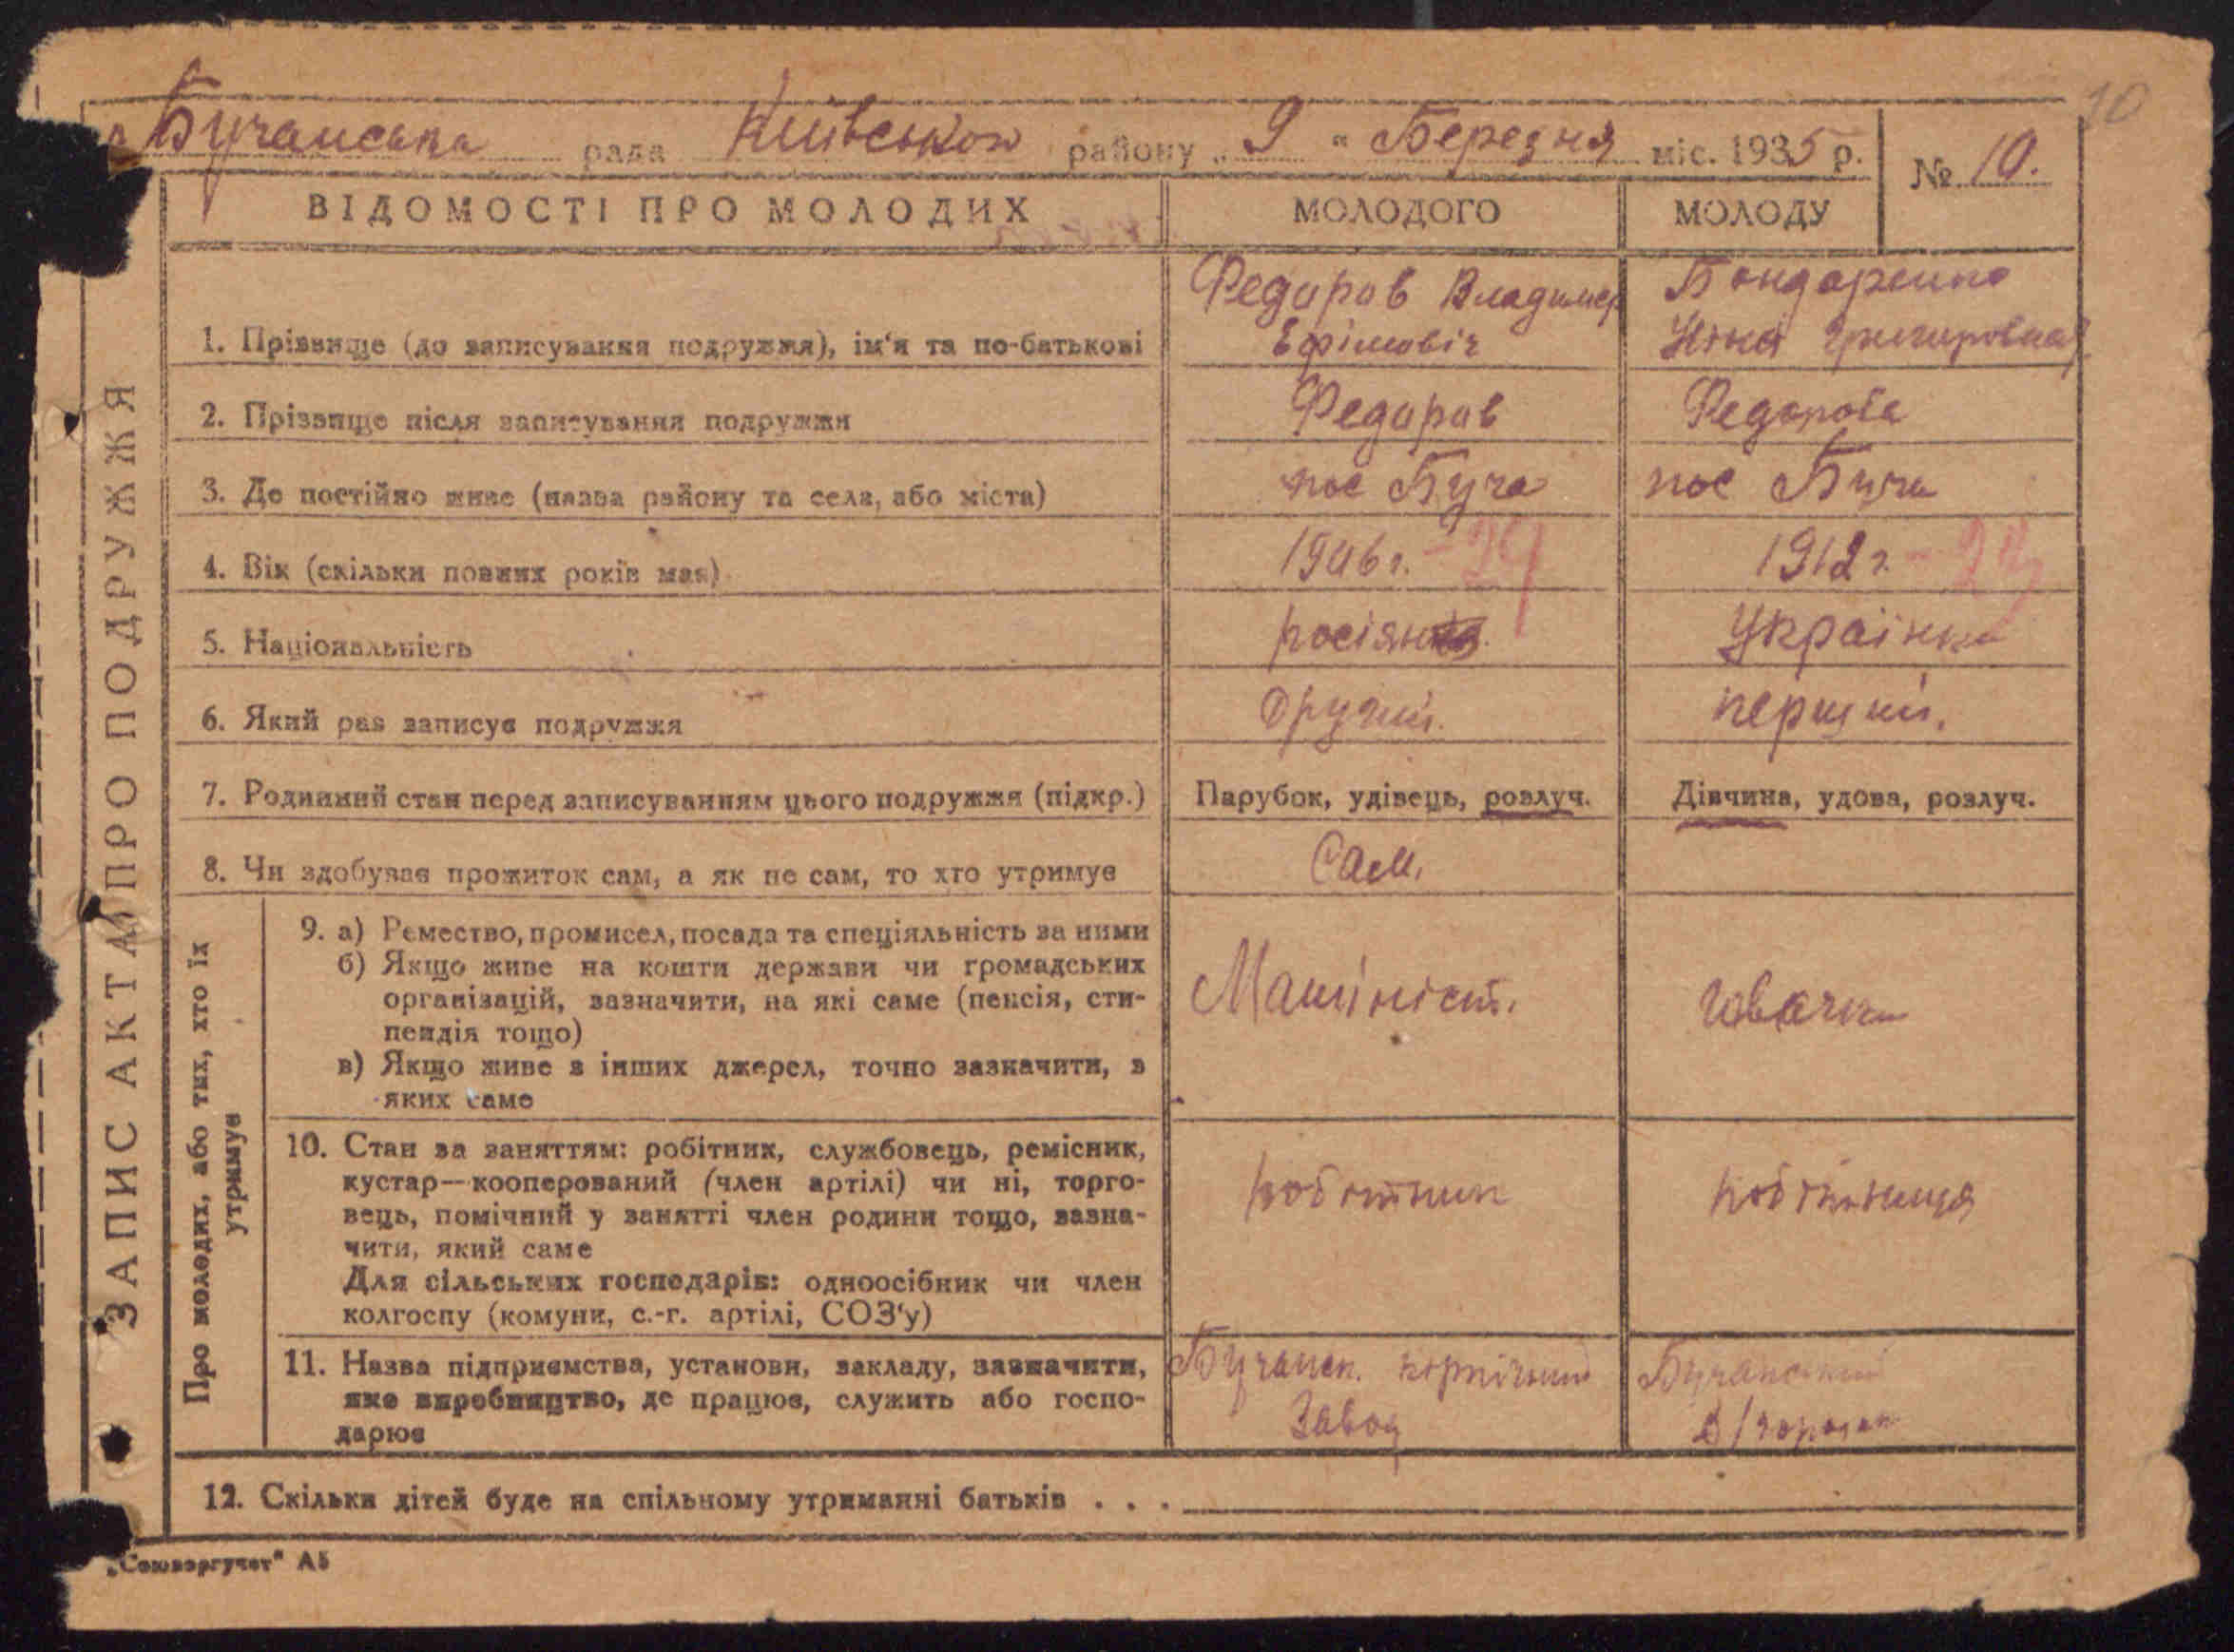 Бучанська рада Київської району „ 9 “ Березня міс. 1935 р.
№ 10.
10
ВІДОМОСТІ ПРО МОЛОДИХ МОЛОДОГО МОЛОДУ
ЗАПИС АКТА ПРО ПОДРУЖЖЯ
1. Прізвище (до записування подружжя), ім‘я та по-батькові
Федоров Владимер
Ефімовіч
Бондаренко
Ніна Григоровна
2. Прізвище після записування подружжя Федоров Федорова
3. Де постійно живе (назва району та села, або міста) пос Буча пос Буча
4. Вік (скільки повних років мая) 1906 г. - 29 1912 г. - 23
5. Національність росіян Українка
6. Який раз записує подружжя другий. перший.
7. Родинний стан перед записуванням цього подружжя (підкр.) Парубок, удівець, розлуч. Дівчина, удова, розлуч.
8. Чи здобуває прожиток сам, а як не сам, то хто утримує Сам.
Про молодих, або тих, хто їх
утримує
9. а) Ремество, промисел, посада та спеціяльність за ними
б) Якщо живе на кошти держави чи громадських
організацій, зазначити, на які саме (пенсія, сти-
пендія тощо)
в) Якщо живе з інших джерел, точно зазначити, з
яких саме
Машініст.
швачка
10. Стан за заняттям: робітник, службовець, ремісник,
кустар—кооперований (член артілі) чи ні, торго-
вець, помічний у занятті член родини тощо, зазна-
чити, який саме
Для сільських господарів: одноосібник чи член
колгоспу (комуни, с.-г. артілі, СОЗ‘у)
робітник
робітниця
11. Назва підприємства, установи, закладу, зазначити,
яке виробництво, де працює, служить або госпо-
дарює
Бучанск. кирпічний
Завод
Бучанський
д/городок
12. Скільки дітей буде на спільному утриманні батьків . . .
„Союзоргучет“ А5